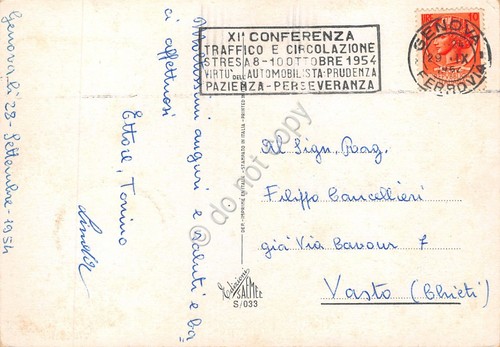 Genova, li 28-Settembre-1954
Moltissimi auguri e saluti e ba
ci affettuosi
Ettore, Tonino
XIª CONFERENZA
TRAFFICO E CIRCOLAZIONE
STRESA 8-10 OTTOBRE 1954
VIRTU' DELL'AUTOMOBILISTA-PRUDENZA
PAZIENZA-PERSEVERANZA
GENOVA
29 IX
FERROVIA
Al Sign. Rag.
Filippo Cancellieri
già Via Cavour 7
Vasto (Chieti)
Edizioni
SAEMEC
S/033
do not copy